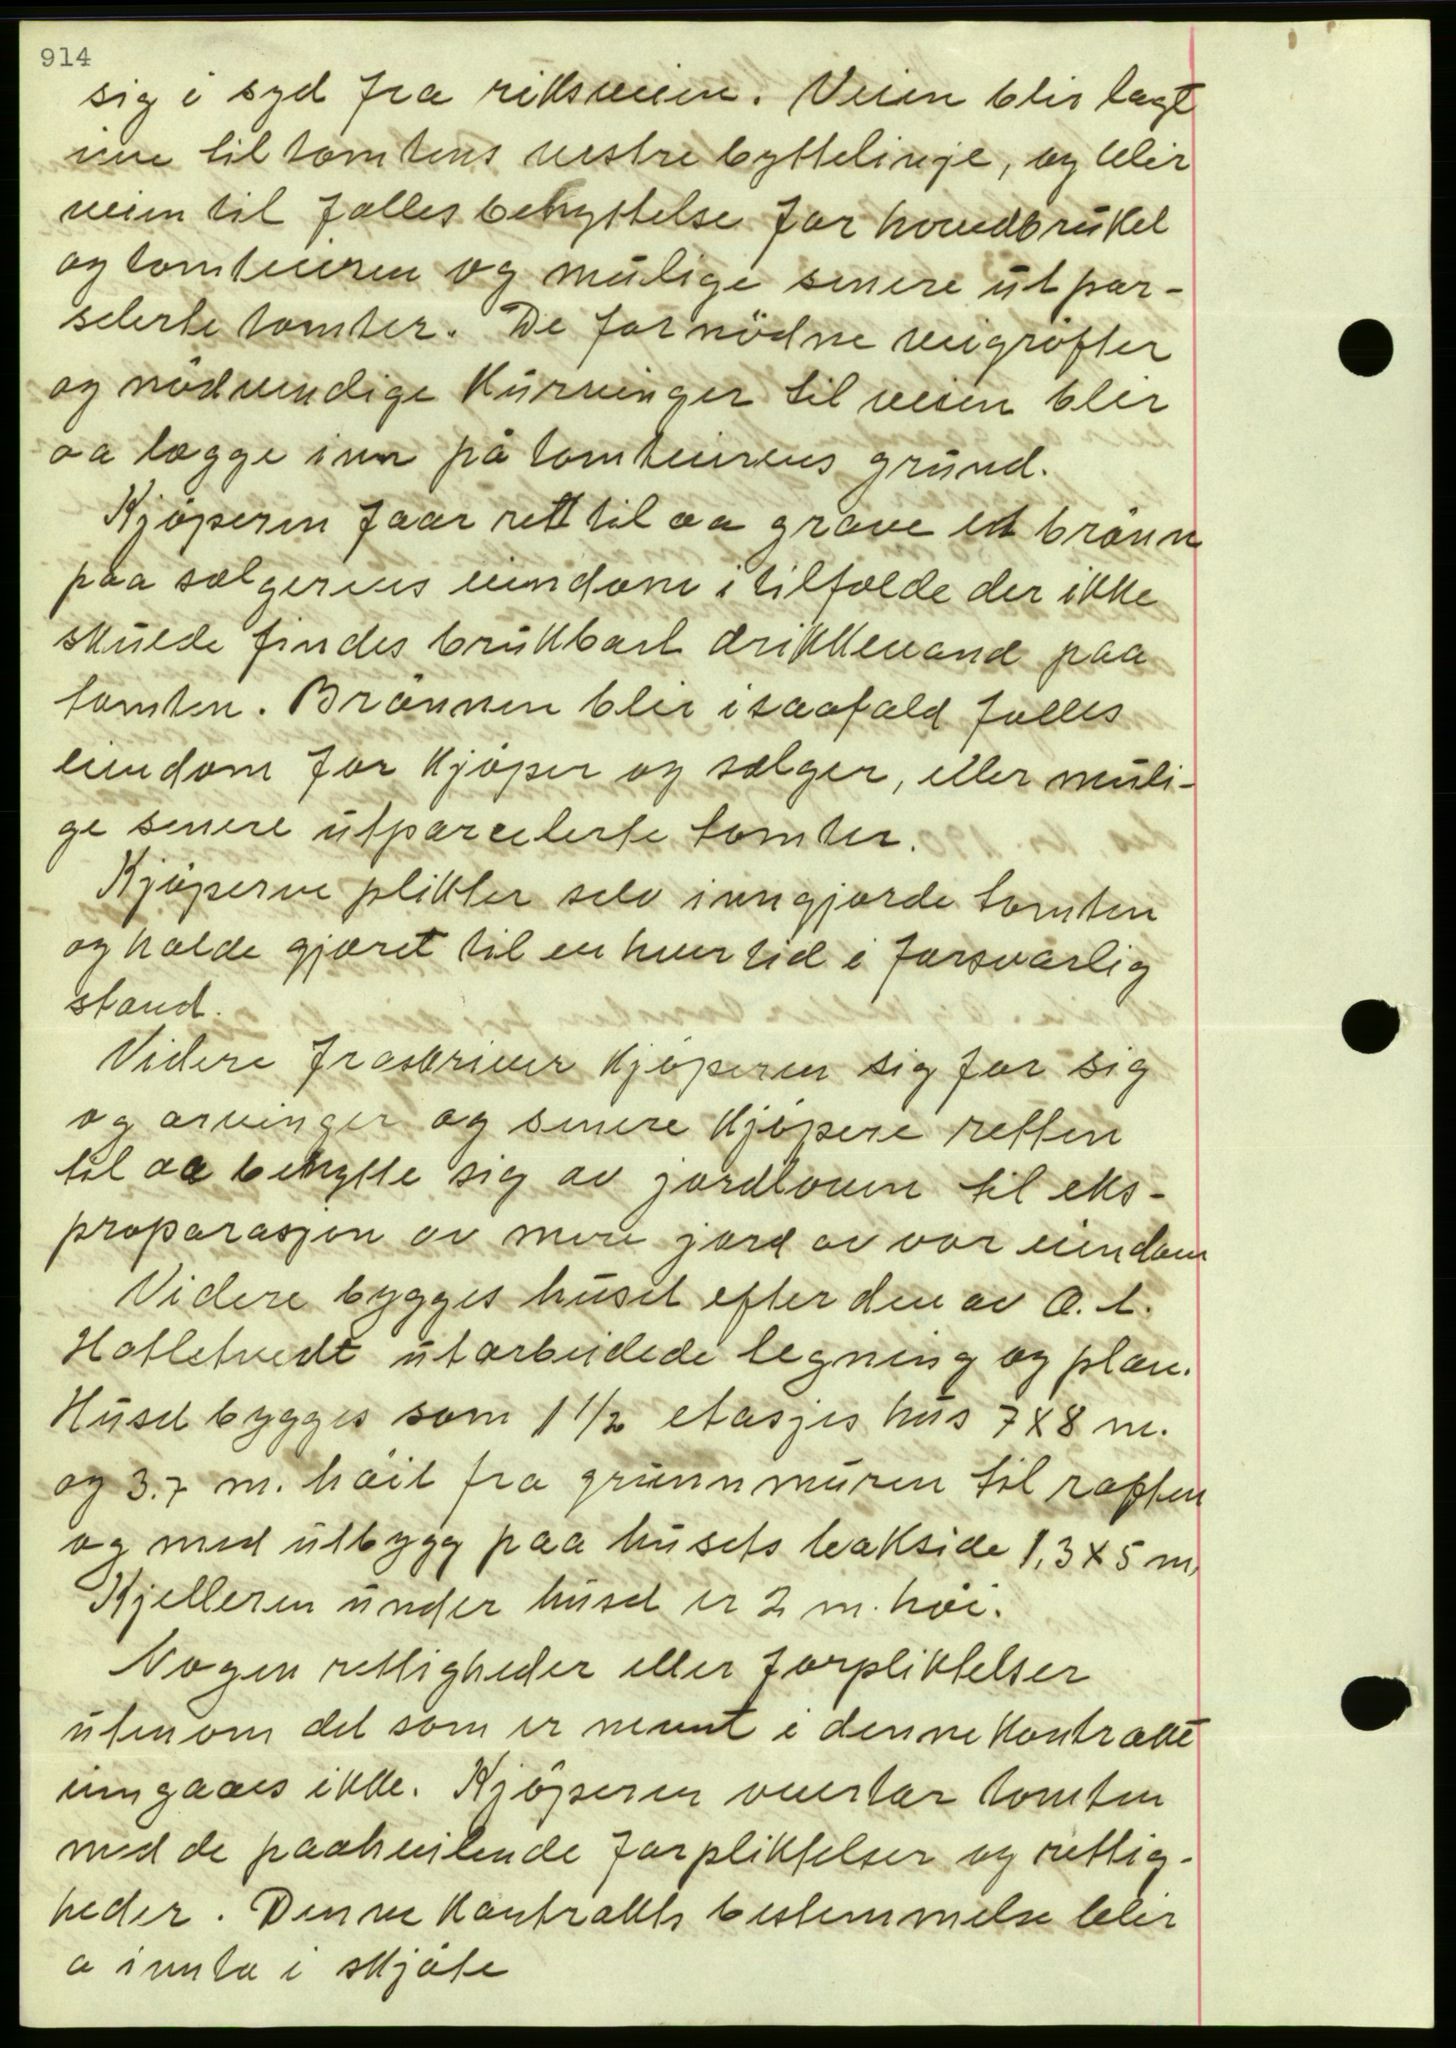 914
sig i syd fra riksveien. Veien blir lagt
inn til tomtens vestre byttelinje, og blir
veien til fælles benyttelse for hovedbruket
og tomteieren og mulige senere utpar-
selerte tomter. De fornødne veigrøfter
og nødvendige kurvinger til veien blir
aa lægge inn på tomteierens grund.
Kjøperen faar rett til aa grave en brønn
paa sælgerens eiendom i tilfælde der ikke
skulde findes brukbart drikkevand paa
tomten. Brønnen blir isaafald fælles
eiendom for kjøper og sælger, eller muli-
ge senere utparcelerte tomter.
Kjøperne plikter selv inngjærde tomten
og holde gjæret til enhver tid i forsvarlig
stand.
Videre fraskriver kjøperen sig for sig
og arvinger og senere kjøpere retten
til aa benytte sig av jordloven til eks-
proparasjon av mere jord av vor eiendom
Videre bygges huset efter den av O. L.
Hatletvedt utarbeidede tegning og plan.
Huset bygges som 1 1/2 etasjes hus 7 x 8 m.
og 3.7 m. høit fra grunnmuren til raften
og med utbygg paa husets bakside 1,3 x 5 m,
Kjelleren under huset er 2 m. høi.
Nogen rettigheder eller forpliktelser
utenom det som er nevnt i denne kontrakt
inngaaes ikke. Kjøperen overtar tomten
med de paahvilende forpliktelser og rettig-
heder. Denne kontrakts bestemmelse blir
a innta i skjøte